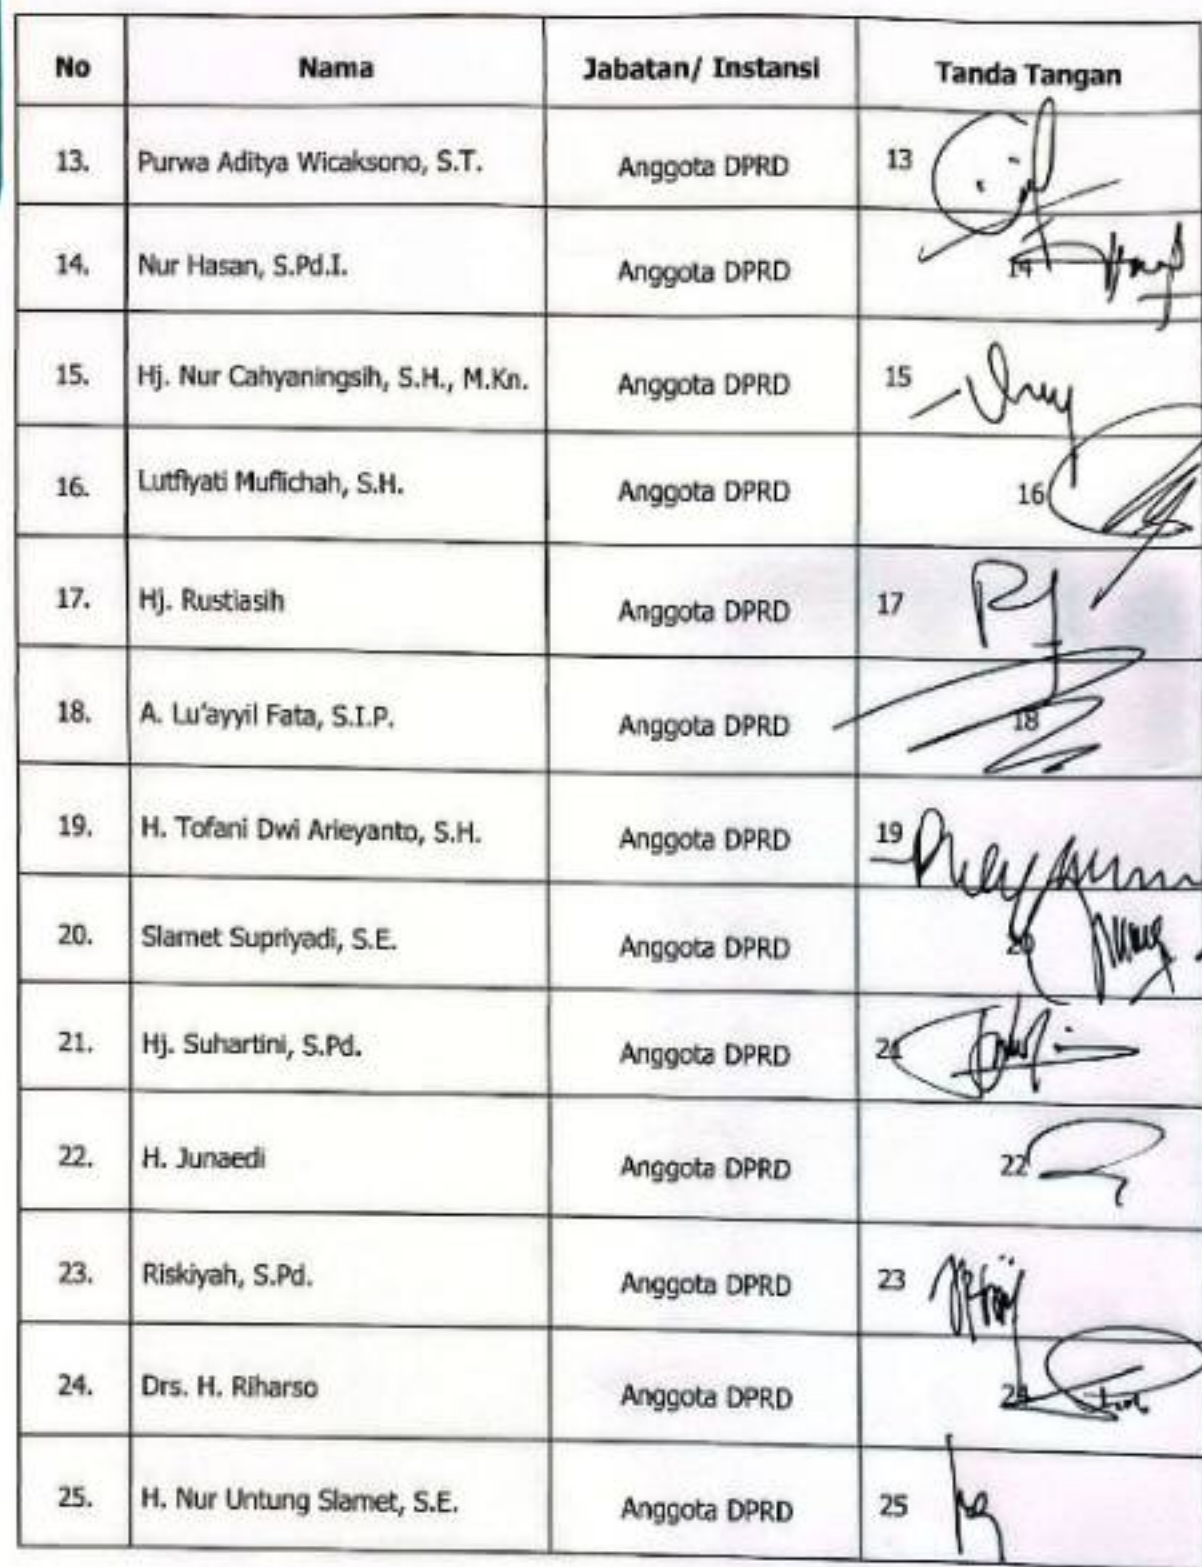 No Nama Jabatan/ Instansi Tanda Tangan
13. Purwa Aditya Wicaksono, S.T. Anggota DPRD 13
14. Nur Hasan, S.Pd.I. Anggota DPRD 14
15. Hj. Nur Cahyaningsih, S.H., M.Kn. Anggota DPRD 15
16. Lutfiyati Muflichah, S.H. Anggota DPRD 16
17. Hj. Rustiasih Anggota DPRD 17
18. A. Lu'ayyil Fata, S.I.P. Anggota DPRD 18
19. H. Tofani Dwi Arieyanto, S.H. Anggota DPRD 19
20. Slamet Supriyadi, S.E. Anggota DPRD 20
21. Hj. Suhartini, S.Pd. Anggota DPRD 21
22. H. Junaedi Anggota DPRD 22
23. Riskiyah, S.Pd. Anggota DPRD 23
24. Drs. H. Riharso Anggota DPRD 24
25. H. Nur Untung Slamet, S.E. Anggota DPRD 25